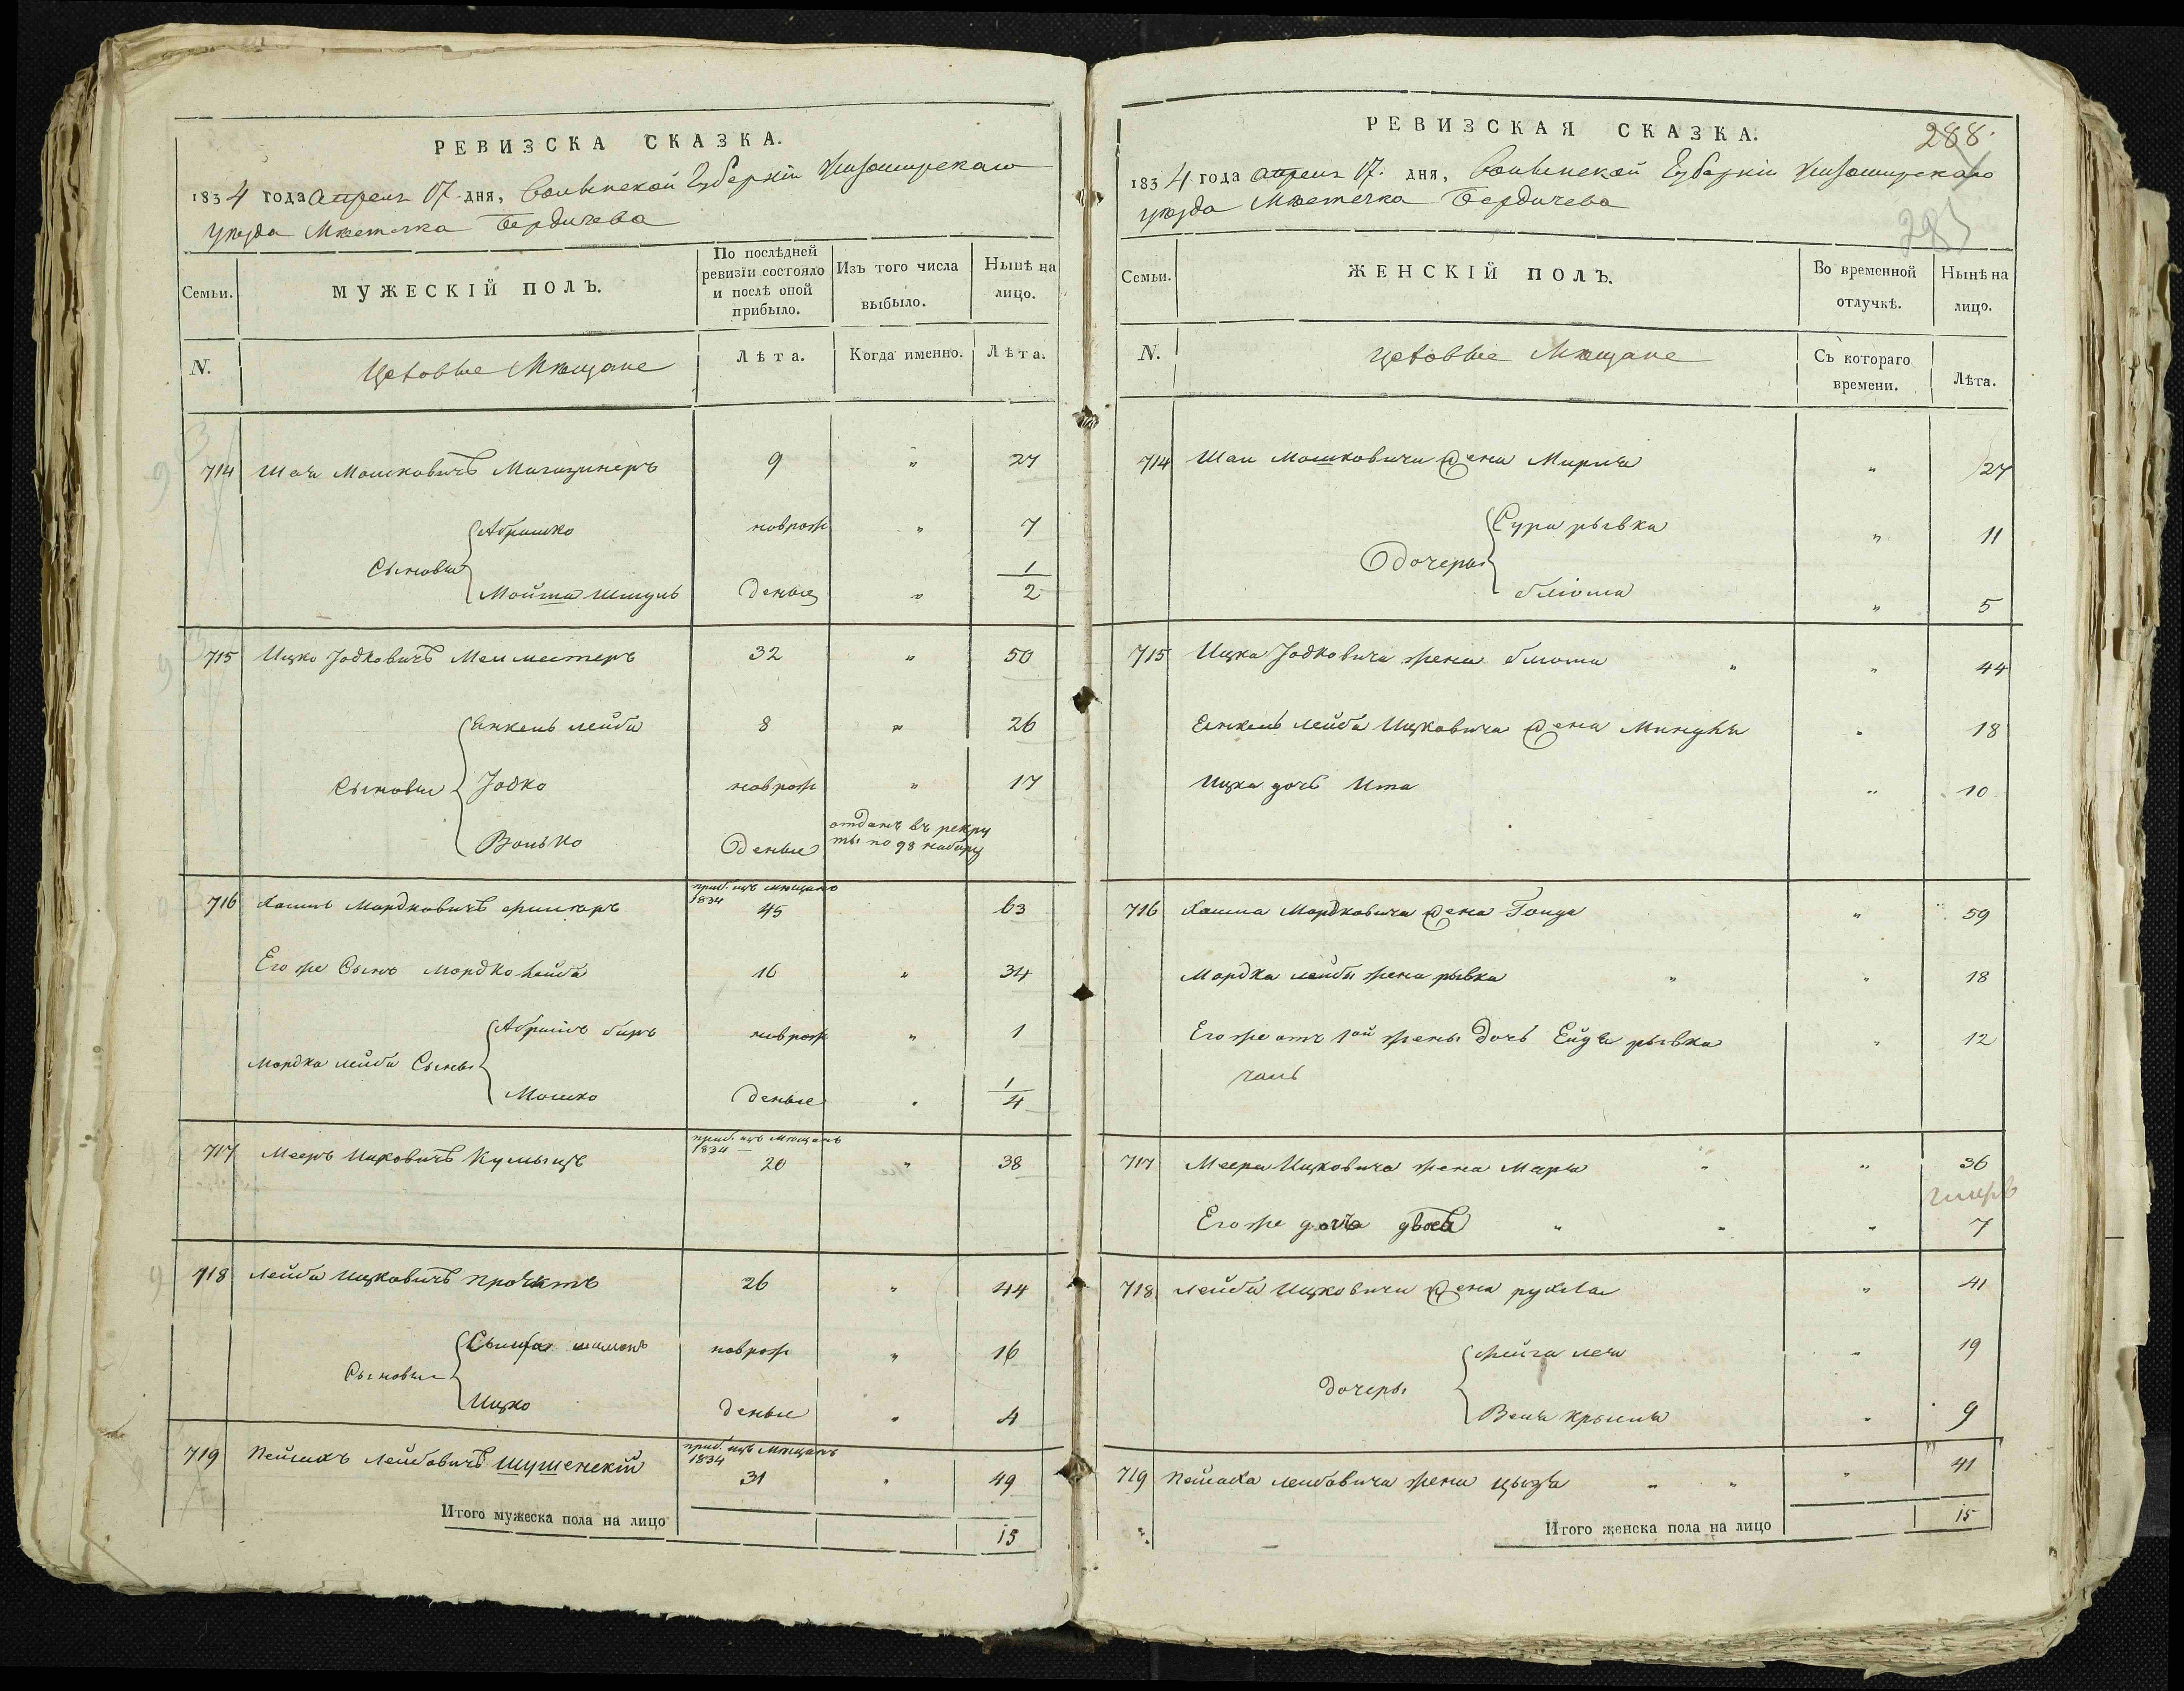 РЕВИЗСКА СКАЗКА.
1834 года апреля 17 дня, Волынской Губерніи Житомирскаго
уѣзда Мѣстечка Бердичева
Семьи.
МУЖЕСКІЙ ПОЛЪ.
По послѣдней ревизіи состояло и послѣ оной прибыло.
Изъ того числа выбыло.
Нынѣ на лицо.
N.
Цеховые Мѣщане
Лѣта.
Когда именно.
Лѣта.
714 Шая Мошковичъ Магазинеръ 9 " 27
Сыновья
Абрашко новрож " 7
Мойша Шмуль Оденые " 1/2
715 Ицко Іодковичъ 32 " 50
Сыновья
Янкель лейба 8 " 26
Іодко новрож " 17
Волько Оденые отданъ въ рекру
ты по 98 набору
716 Мордковичъ приб. изъ мѣщанъ
1834
45 63
Его же Сынъ Мордко лейба 16 " 34
Мордка лейба Сыны
новрож " 1
Мошко Оденые " 1/4
717 Мееръ Ицковичъ приб. изъ Мѣщанъ
1834
20 " 38
718 Лейба Ицковичъ 26 " 44
Сыновья
новрож " 16
Ицко деные " 4
719 Пейсахъ Лейбовичъ Шушенскій приб. изъ Мѣщанъ
1834
31 " 49
Итого мужеска пола на лицо 15
РЕВИЗСКАЯ СКАЗКА.
288
1834 года апреля 17. дня, Волынской Губерніи Житомирскаго
уѣзда Мѣстечка Бердичева
Семьи.
ЖЕНСКІЙ ПОЛЪ.
Во временной отлучкѣ.
Нынѣ на лицо.
N.
Цеховые Мѣщане
Съ котораго времени.
Лѣта.
714 Шаи Мошковича жена Мирля " 27
Дочеры
Сура рывка " 11
блюма " 5
715 Ицка Іодковича жена блюма " " 44
Янкель лейба Ицковича жена " 18
Ицка дочь Ита " 10
716 Мордковича жена " 59
Мордка лейбы жена рывка " " 18
Его же отъ 1ой жены дочь рывка " 12
717 Меера Ицковича жена " " 36
Его же дочь двося " " " 7
718 Лейба Ицковича жена рухля " 41
Дочеры
" 19
" 9
719 Пейсаха лейбовича жена " " " 41
Итого женска пола на лицо 15